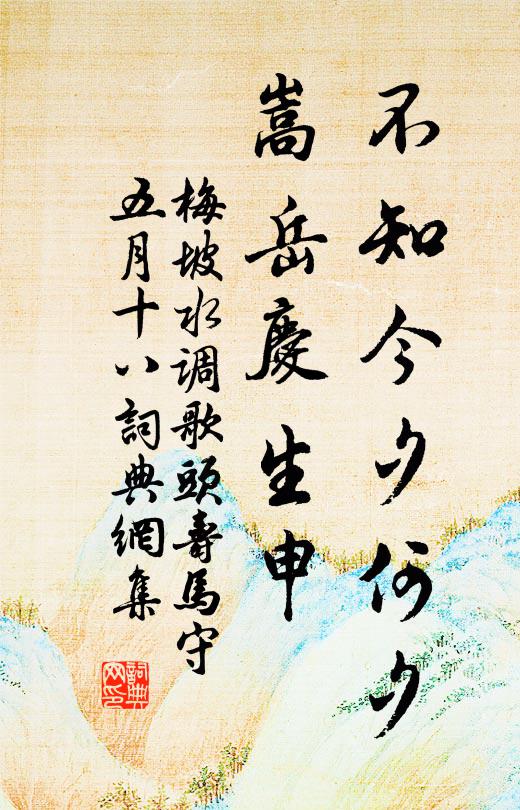 不知今夕何夕
嵩岳慶生申
梅坡水调歌頭壽馬守
五月十八詞典網集
詞典
网印